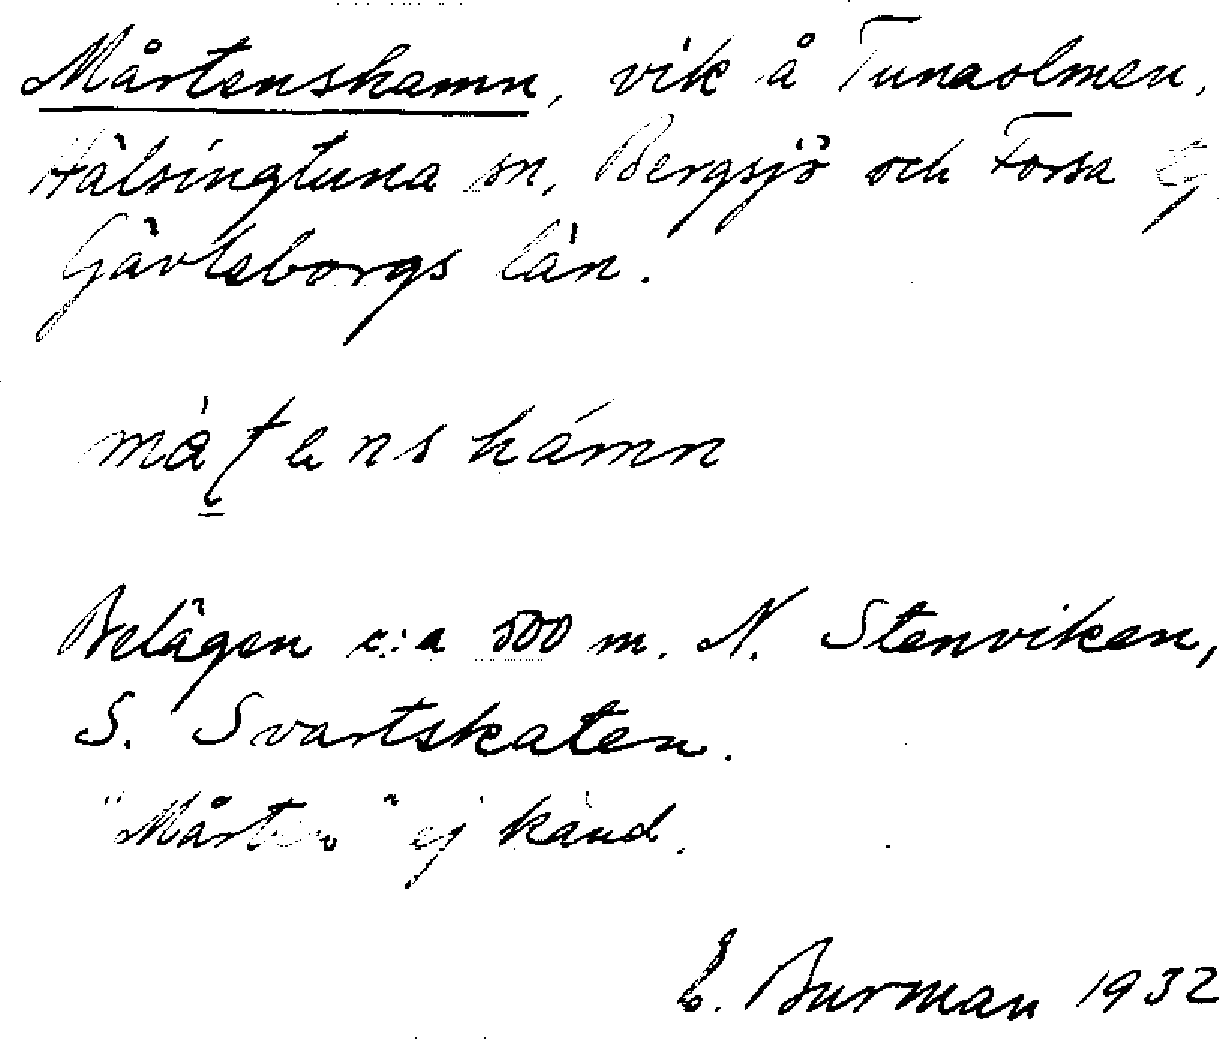 Mårtenshamn, vik å Tunaolmen,
Hälsingtuna sn, Bergsjö och Forsa
Gävleborgs län.
Belägen c:a 500 m. N. Stenviken,
S. Svartskaten.
"Mårten" ej känd.
E. Burman 1932